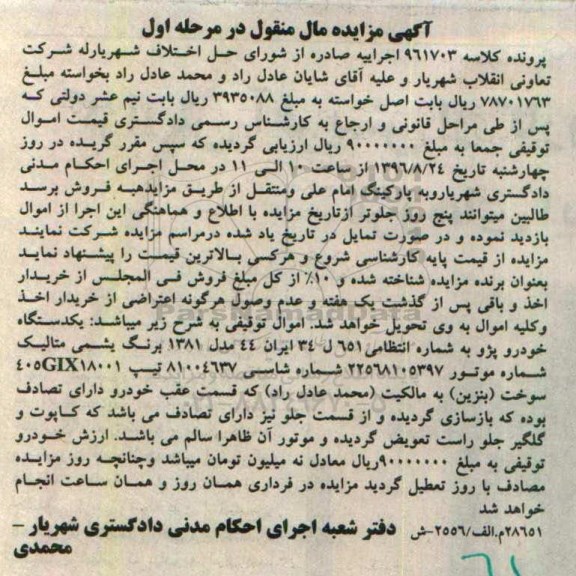 آگهی مزایده مال منقول در مرحله اول
پرونده کلاسه ۹۶۱۷۰۳ اجراییه صادره از شورای حل اختلاف شهریارله شرکت
تعاونی انقلاب شهریار و علیه آقای شایان عادل راد و محمد عادل راد بخواسته مبلغ
۷۸۷۰۱۷۶۳ ریال بابت اصل خواسته به مبلغ ۳۹۳۵۰۸۸ ریال بابت نیم عشر دولتی که
پس از طی مراحل قانونی و ارجاع به کارشناس رسمی دادگستری قیمت اموال
توقیفی جمعا به مبلغ ۹۰۰۰۰۰۰۰ ریال ارزیابی گردیده که سپس مقرر گریده در روز
چهارشنبه تاریخ ۱۳۹۶/۸/۲۴ از ساعت ۱۰ الی ۱۱ در محل اجرای احکام مدنی
دادگستری شهریاروبه پارکینگ امام علی ومنتقل از طریق مزایدهبه فروش برسد
طالبین میتوانند پنج روز جلوتر ازتاریخ مزایده با اطلاع و هماهنگی این اجرا از اموال
بازدید نموده و در صورت تمایل در تاریخ یاد شده درمراسم مزایده شرکت نمایند
مزایده از قیمت پایه کارشناسی شروع و هرکسی بالاترین قیمت را پیشنهاد نماید
بعنوان برنده مزایده شناخته شده و ۱۰٪ از کل مبلغ فروش فی المجلس از خریدار
اخذ و باقی پس از گذشت یک هفته و عدم وصول هرگونه اعتراضی از خریدار اخذ
وکلیه اموال به وی تحویل خواهد شد. اموال توقیفی به شرح زیر میباشد: یکدستگاه
خودرو پژو به شماره انتظامی۶۵۱ ل ۳۴ ایران ۴۴ مدل ۱۳۸۱ برنگ یشمی متالیک
شماره موتور ۲۲۵۶۸۱۰۵۳۹۷ شماره شاسی ۸۱۰۰۴۶۳۷ تیپ ۴۰۵GIX۱۸۰۰۱
سوخت (بنزین) به مالکیت (محمد عادل راد) که قسمت عقب خودرو دارای تصادف
بوده که بازسازی گردیده و از قسمت جلو نیز دارای تصادف می باشد که کاپوت و
گلگیر جلو راست تعویض گردیده و موتور آن ظاهرا سالم می باشد. ارزش خودرو
توقیفی به مبلغ ۹۰۰۰۰۰۰۰ریال معادل نه میلیون تومان میباشد وچنانچه روز مزایده
مصادف با روز تعطیل گردید مزایده در فرداری همان روز و همان ساعت انجام
خواهد شد
۲۸۶۵۱م.الف/۲۵۵۶-ش دفتر شعبه اجرای احکام مدنی دادگستری شهریار –
محمدی
ParsNamadData